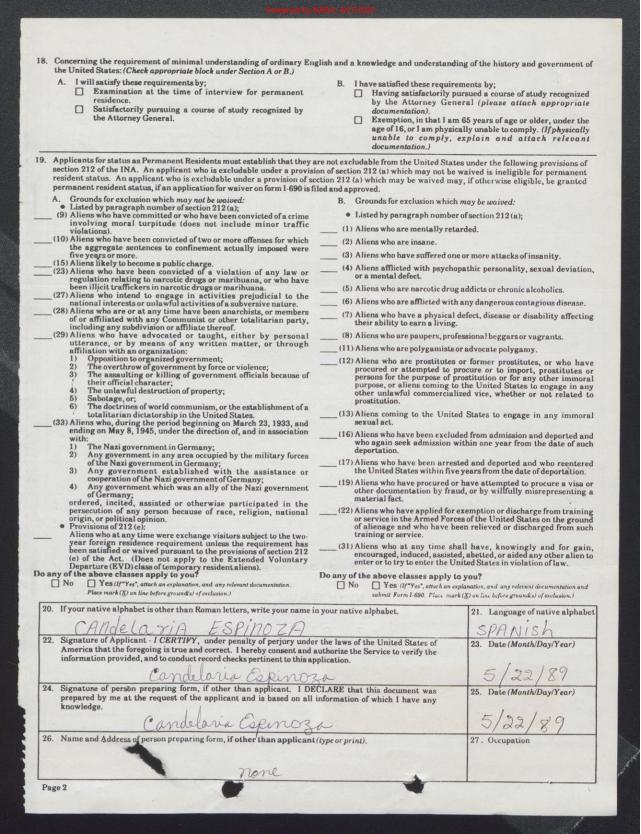 18. Concerning the requirement of minimal understanding of ordinary English and a knowledge and understanding of the history and government of
the United States: (Check appropriate block under Section A or B.)
A. I will satisfy these requirements by;
☐ Examination at the time of interview for permanent
residence.
☐ Satisfactorily pursuing a course of study recognized by
the Attorney General.
B. I have satisfied these requirements by;
☐ Having satisfactorily pursued a course of study recognized
by the Attorney General (please attach appropriate
documentation).
☐ Exemption, in that I am 65 years of age or older, under the
age of 16, or I am physically unable to comply. (If physically
unable to comply, explain and attach relevant
documentation.)
19. Applicants for status as Permanent Residents must establish that they are not excludable from the United States under the following provisions of
section 212 of the INA. An applicant who is excludable under a provision of section 212 (a) which may not be waived is ineligible for permanent
resident status. An applicant who is excludable under a provision of section 212 (a) which may be waived may, if otherwise eligible, be granted
permanent resident status, if an application for waiver on form I-690 is filed and approved.
A. Grounds for exclusion which may not be waived:
● Listed by paragraph number of section 212 (a);
(9) Aliens who have committed or who have been convicted of a crime
involving moral turpitude (does not include minor traffic
violations).
(10) Aliens who have been convicted of two or more offenses for which
the aggregate sentences to confinement actually imposed were
five years or more.
(15) Aliens likely to become a public charge.
(23) Aliens who have been convicted of a violation of any law or
regulation relating to narcotic drugs or marihuana, or who have
been illicit traffickers in narcotic drugs or marihuana.
(27) Aliens who intend to engage in activities prejudicial to the
national interests or unlawful activities of a subversive nature.
(28) Aliens who are or at any time have been anarchists, or members
of or affiliated with any Communist or other totalitarian party,
including any subdivision or affiliate thereof.
(29) Aliens who have advocated or taught, either by personal
utterance, or by means of any written matter, or through
affiliation with an organization:
1) Opposition to organized government;
2) The overthrow of government by force or violence;
3) The assaulting or killing of government officials because of
their official character;
4) The unlawful destruction of property;
5) Sabotage, or;
6) The doctrines of world communism, or the establishment of a
totalitarian dictatorship in the United States.
(33) Aliens who, during the period beginning on March 23, 1933, and
ending on May 8, 1945, under the direction of, and in association
with:
1) The Nazi government in Germany;
2) Any government in any area occupied by the military forces
of the Nazi government in Germany;
3) Any government established with the assistance or
cooperation of the Nazi government of Germany;
4) Any government which was an ally of the Nazi government
of Germany;
(e) ordered, incited, assisted or otherwise participated in the
persecution of any person because of race, religion, national
origin, or political opinion.
● Provisions of 212 (e):
Aliens who at any time were exchange visitors subject to the two-
year foreign residence requirement unless the requirement has
been satisfied or waived pursuant to the provisions of section 212
(e) of the Act. (Does not apply to the Extended Voluntary
Departure (EVD) class of temporary resident aliens).
Do any of the above classes apply to you?
☐ No ☐ Yes (If "Yes", attach an explanation, and any relevant documentation.
Place mark (X) on line before ground(s) of exclusion.)
B. Grounds for exclusion which may be waived:
● Listed by paragraph number of section 212 (a);
(1) Aliens who are mentally retarded.
(2) Aliens who are insane.
(3) Aliens who have suffered one or more attacks of insanity.
(4) Aliens afflicted with psychopathic personality, sexual deviation,
or a mental defect.
(5) Aliens who are narcotic drug addicts or chronic alcoholics.
(6) Aliens who are afflicted with any dangerous contagious disease.
(7) Aliens who have a physical defect, disease or disability affecting
their ability to earn a living.
(8) Aliens who are paupers, professional beggars or vagrants.
(11) Aliens who are polygamists or advocate polygamy.
(12) Aliens who are prostitutes or former prostitutes, or who have
procured or attempted to procure or to import, prostitutes or
persons for the purpose of prostitution or for any other immoral
purpose, or aliens coming to the United States to engage in any
other unlawful commercialized vice, whether or not related to
prostitution.
(13) Aliens coming to the United States to engage in any immoral
sexual act.
(16) Aliens who have been excluded from admission and deported and
who again seek admission within one year from the date of such
deportation.
(17) Aliens who have been arrested and deported and who reentered
the United States within five years from the date of deportation.
(19) Aliens who have procured or have attempted to procure a visa or
other documentation by fraud, or by willfully misrepresenting a
material fact.
(22) Aliens who have applied for exemption or discharge from training
or service in the Armed Forces of the United States on the ground
of alienage and who have been relieved or discharged from such
training or service.
(31) Aliens who at any time shall have, knowingly and for gain,
encouraged, induced, assisted, abetted, or aided any other alien to
enter or to try to enter the United States in violation of law.
Do any of the above classes apply to you?
☐ No ☐ Yes (If "Yes", attach an explanation, and any relevant documentation and
submit Form I-690. Place mark (X) on line before ground(s) of exclusion.)
20. If your native alphabet is other than Roman letters, write your name in your native alphabet.
CANdelaRIA ESPINOZA
21. Language of native alphabet
SPANish
22. Signature of Applicant - I CERTIFY, under penalty of perjury under the laws of the United States of
America that the foregoing is true and correct. I hereby consent and authorize the Service to verify the
information provided, and to conduct record checks pertinent to this application.
Candelaria Espinoza
23. Date (Month/Day/Year)
5/22/89
24. Signature of person preparing form, if other than applicant. I DECLARE that this document was
prepared by me at the request of the applicant and is based on all information of which I have any
knowledge.
Candelaria Espinoza
25. Date (Month/Day/Year)
5/22/89
26. Name and Address of person preparing form, if other than applicant (type or print).
none
27. Occupation
Page 2